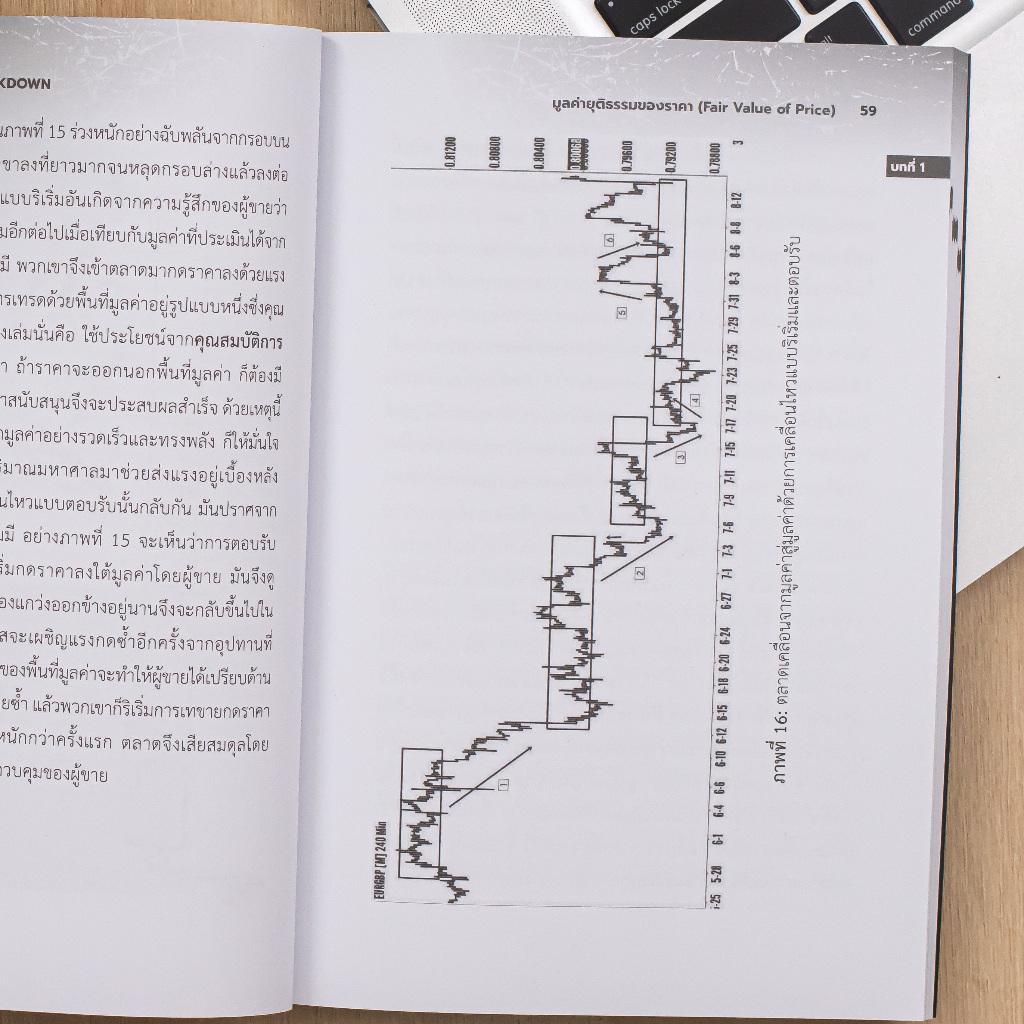 KDOWN
ภาพที่ 15 ร่วงหนักอย่างฉับพลันจากกรอบบน
ขาลงที่ยาวมากจนหลุดกรอบล่างแล้วลงต่อ
แบบริเริ่มอันเกิดจากความรู้สึกของผู้ขายว่า
อีกต่อไปเมื่อเทียบกับมูลค่าที่ประเมินได้จาก
มี พวกเขาจึงเข้าตลาดมากดราคาลงด้วยแรง
ารเทรดด้วยพื้นที่มูลค่าอยู่รูปแบบหนึ่งซึ่งคุณ
งเล่มนั่นคือ ใช้ประโยชน์จากคุณสมบัติการ
า ถ้าราคาจะออกนอกพื้นที่มูลค่า ก็ต้องมี
าสนับสนุนจึงจะประสบผลสำเร็จ ด้วยเหตุนี้
มูลค่าอย่างรวดเร็วและทรงพลัง ก็ให้มั่นใจ
ริมาณมหาศาลมาช่วยส่งแรงอยู่เบื้องหลัง
นไหวแบบตอบรับนั้นกลับกัน มันปราศจาก
มี อย่างภาพที่ 15 จะเห็นว่าการตอบรับ
ริ่มกดราคาลงใต้มูลค่าโดยผู้ขาย มันจึงดู
องแกว่งออกข้างอยู่นานจึงจะกลับขึ้นไปใน
สจะเผชิญแรงกดซ้ำอีกครั้งจากอุปทานที่
ของพื้นที่มูลค่าจะทำให้ผู้ขายได้เปรียบด้าน
ยซ้ำ แล้วพวกเขาก็ริเริ่มการเทขายกดราคา
หนักกว่าครั้งแรก ตลาดจึงเสียสมดุลโดย
วบคุมของผู้ขาย
มูลค่ายุติธรรมของราคา (Fair Value of Price) 59
บทที่ 1
EURGBP [M] 240 Min
0.81200
0.80800
0.80400
0.79600
0.79200
0.78800
1
2
3
4
5
6
5-28 6-1 6-4 6-6 6-10 6-12 6-15 6-18 6-20 6-24 6-27 7-1 7-3 7-6 7-9 7-11 7-15 7-17 7-20 7-23 7-25 7-29 7-31 8-3 8-6 8-8 8-12 3
ภาพที่ 16: ตลาดเคลื่อนจากมูลค่าสู่มูลค่าด้วยการเคลื่อนไหวแบบริเริ่มและตอบรับ
caps lock
alt
command